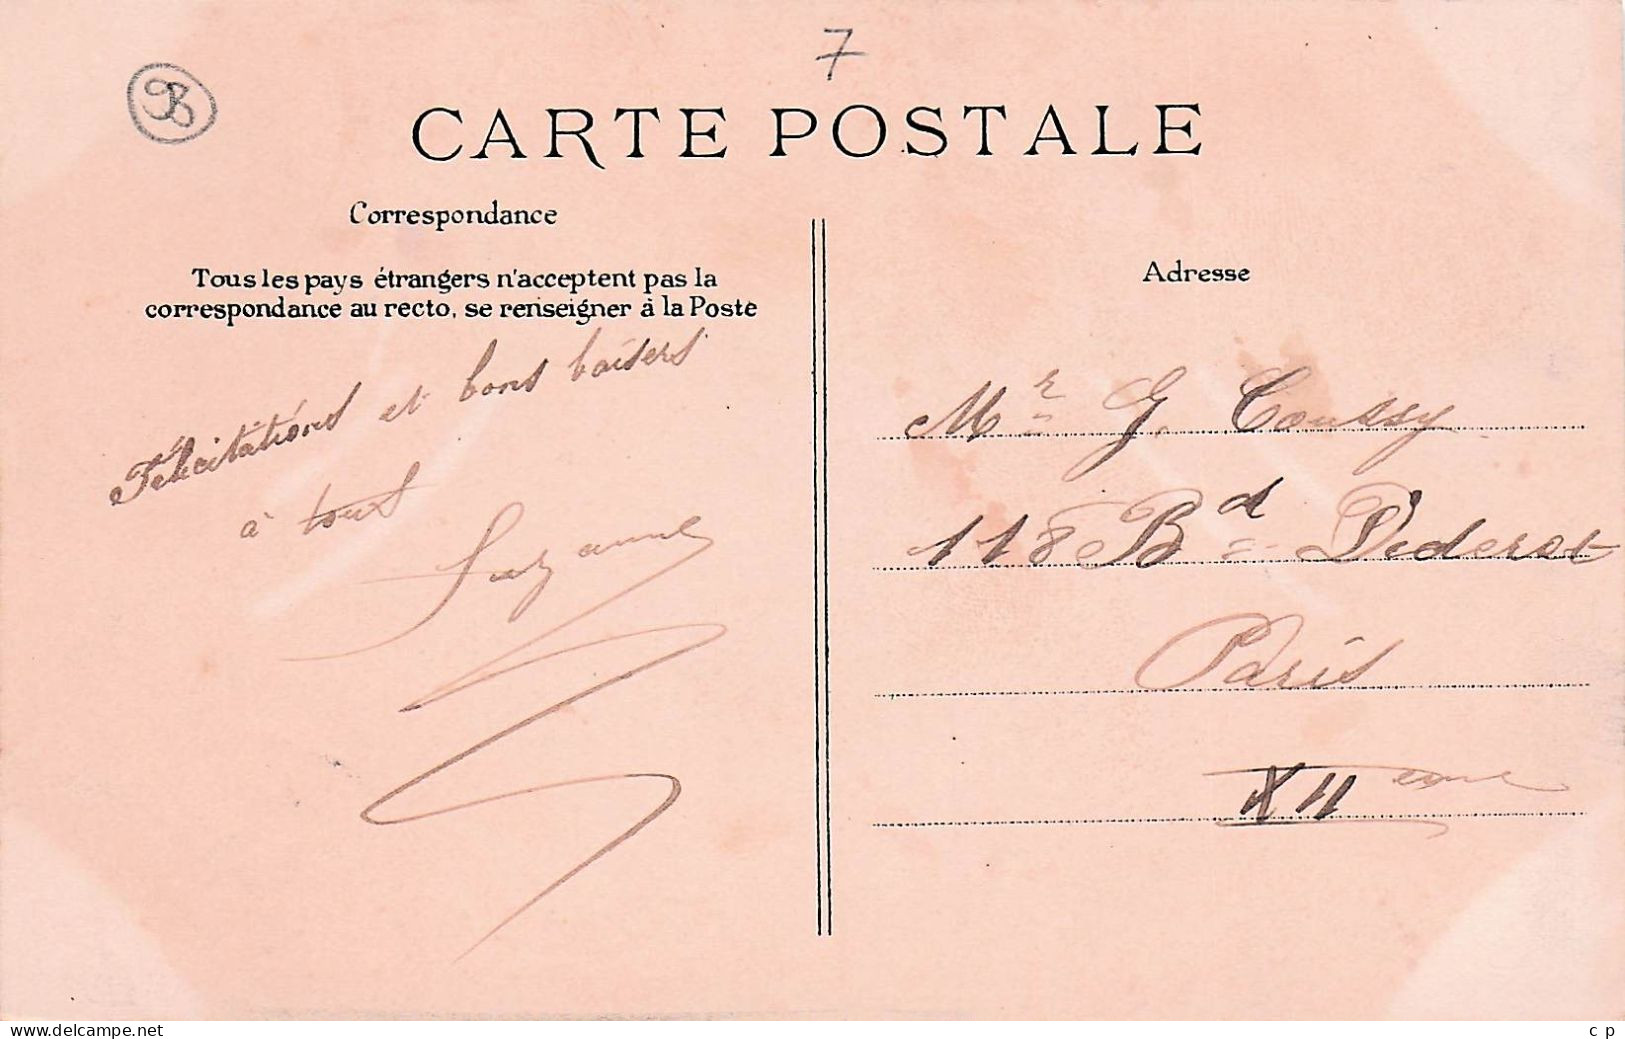 7
CARTE POSTALE
Correspondance
Tous les pays étrangers n'acceptent pas la
correspondance au recto, se renseigner à la Poste
Félicitations et bons baisers
à tous
Suzanne
Adresse
Mr G. Coussy
118 Bd Diderot
Paris
XIIeme
www.delcampe.net
c p